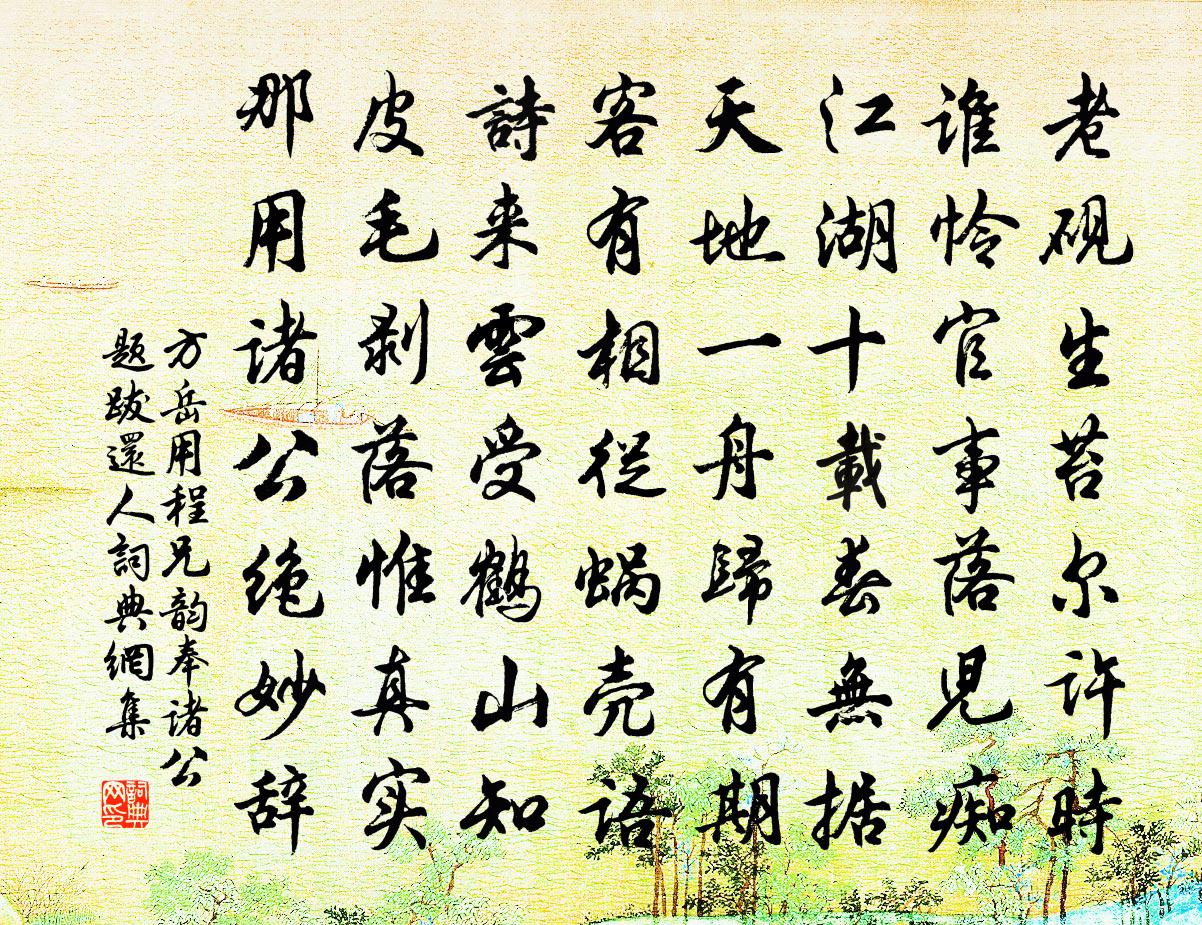 老砚生苔尔许時
谁怜官事落児痴
江湖十載春無据
天地一舟歸有期
客有相從蜗壳語
詩来雲受鶴山知
皮毛剥落惟真实
那用诸公绝妙辞
方岳用程兄韵奉诸公
题跋還人詞典網集
詞典网印